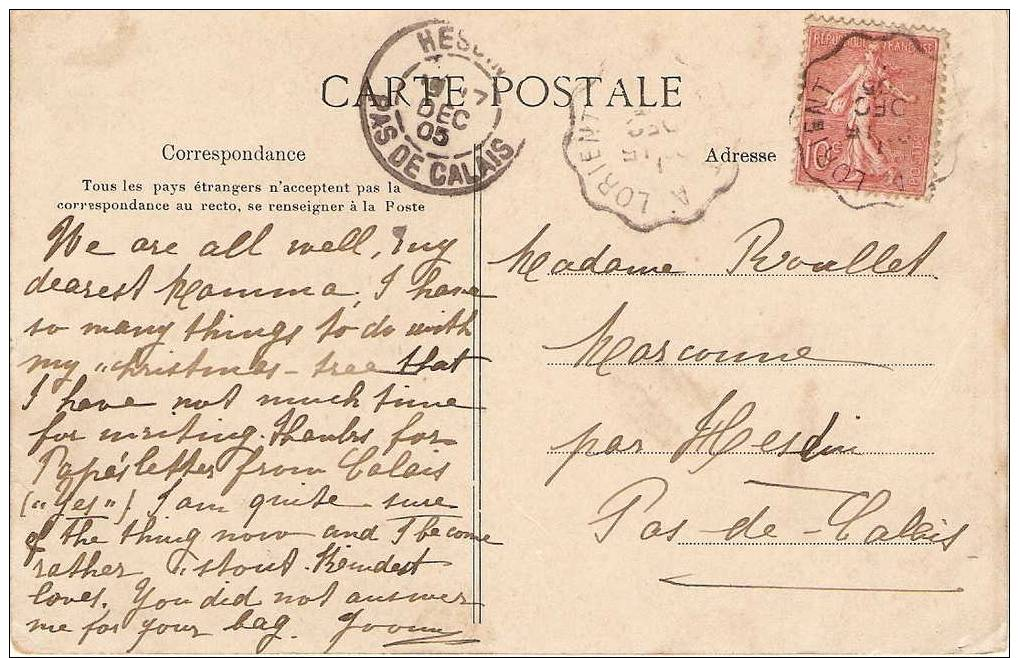 CARTE POSTALE
HESDIN
PAS DE CALAIS
DEC
05
LORIENT
RÉPUBLIQUE FRANÇAISE
10c
POSTES
Correspondance
Adresse
Tous les pays étrangers n'acceptent pas la
correspondance au recto, se renseigner à la Poste
We are all well, my
dearest Mamma, I have
so many things to do with
my "christmas-tree that
I have not much time
for writing. Thanks for
Papa's letter from Calais
("Yes") I am quite sure
of the thing now and I become
rather "stout. Kindest
loves. You did not answer
me for your bag. Yvonne
Madame Roullet
Marconne
par Hesdin
Pas-de-Calais